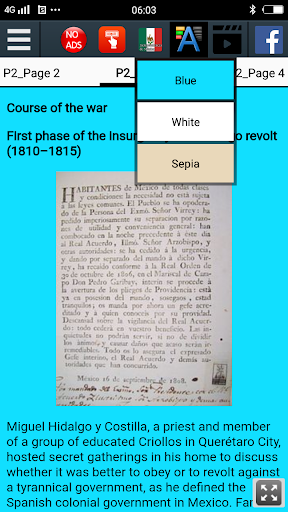 06:03
NO
ADS
A
P2_Page 2
P2_
2_Page 4
Blue
White
Sepia
Course of the war
First phase of the Insur
o revolt
(1810–1815)
HABITANTES de México de todas clases
y condiciones: la necesidad no está sujeta
a las leyes comunes. El Pueblo se ha apodera-
do de la Persona del Exmô. Señor Virrey: ha
pedido imperiosamente su separacion por razo-
nes de utilidad y conveniencia general: han
convocado en la noche precedente á este dia
al Real Acuerdo, Illmô. Señor Arzobispo, y
otras autoridades: se ha cedido á la urgencia,
y dando por separado del mando á dicho Vir-
rey, ha recaido conforme á la Real Orden de
30 de octubre de 1806, en el Mariscal de Cam-
po Don Pedro Garibay, interin se procede á
la avertura de los pliegos de Providencia: está
ya en posesion del mando, sosegaos, estad
tranquilos, os manda por ahora un gefe acre-
ditado y á quien conoceis por su probidad.
Descansad sobre la vigilancia del Real Acuer-
do: todo cederá en vuestro beneficio. Las in-
quietudes no podrán servir, si no de dividir
los ánimos, y causar daños que acaso serán ir-
remediables. Todo os lo asegura el expresado
Gefe interino, el Real Acuerdo y demás auto-
ridades que han concurrido.
México 16 de septiembre de 1808.
Miguel Hidalgo y Costilla, a priest and member
of a group of educated Criollos in Querétaro City,
hosted secret gatherings in his home to discuss
whether it was better to obey or to revolt against
a tyrannical government, as he defined the
Spanish colonial government in Mexico. Fa